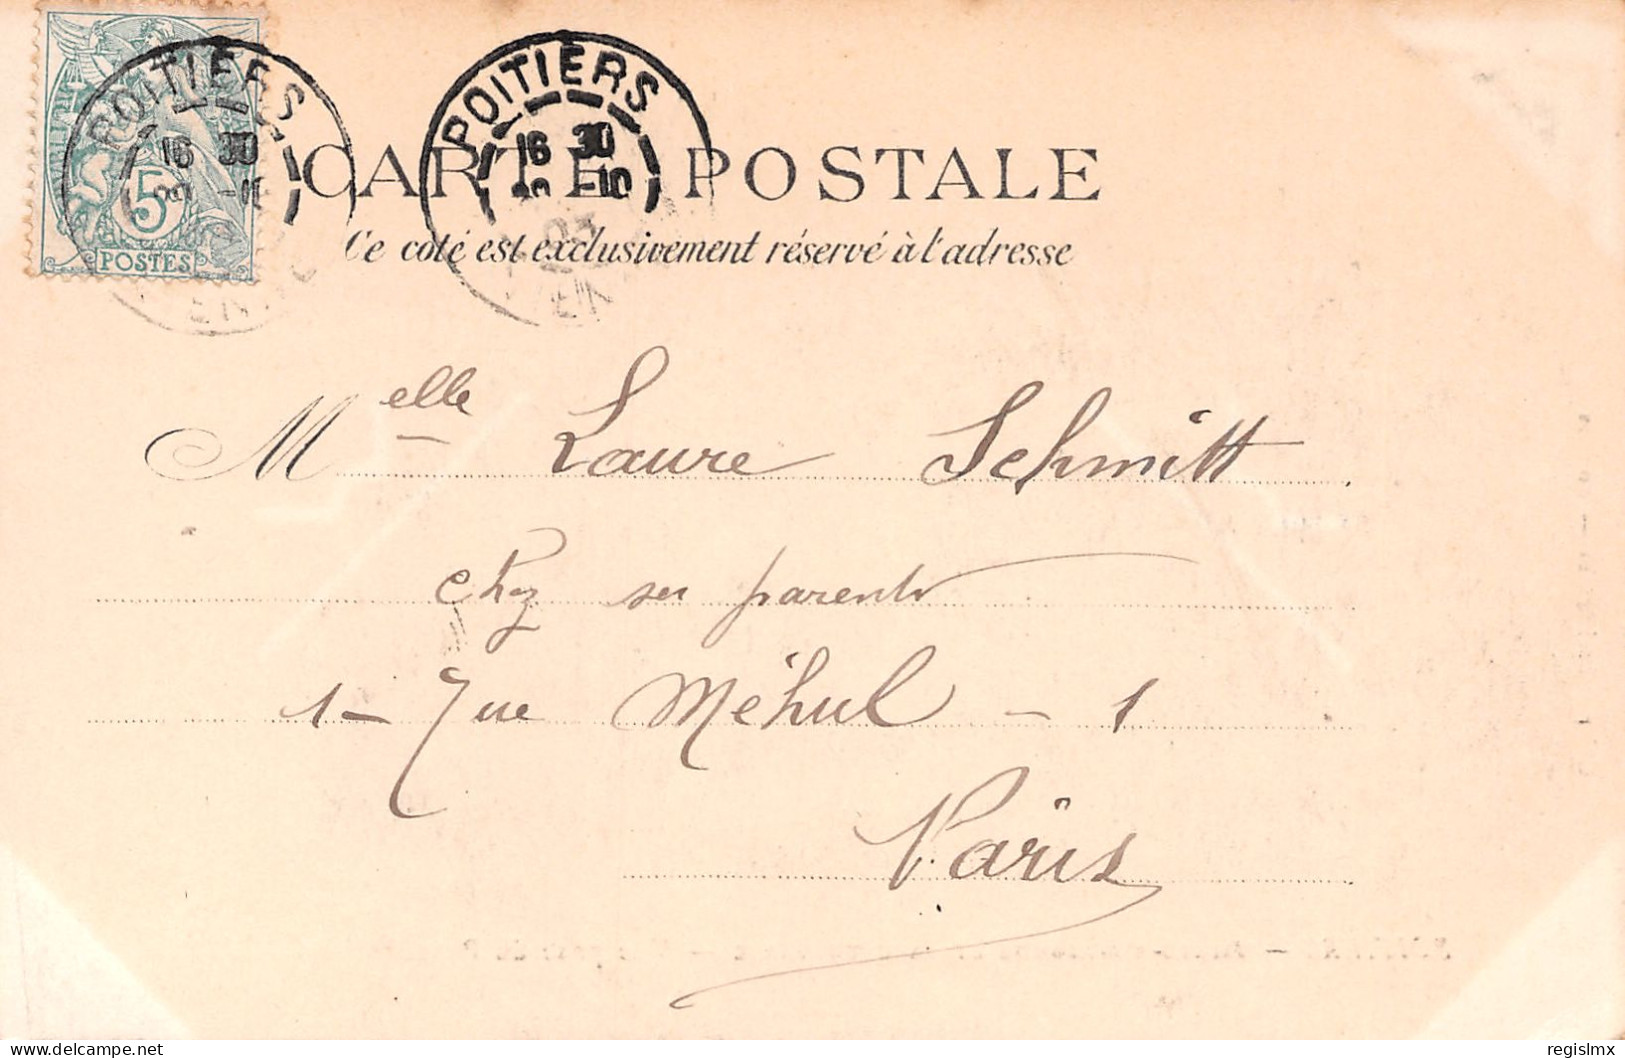 POITIERS
16 30
5
POSTES
POITIERS
16 30
-10
03
CARTE POSTALE
Ce coté est exclusivement réservé à l'adresse
Melle Laure Schmitt
chez ses parents
1 - rue Méhul - 1
Paris
delcampe.net
regislmx